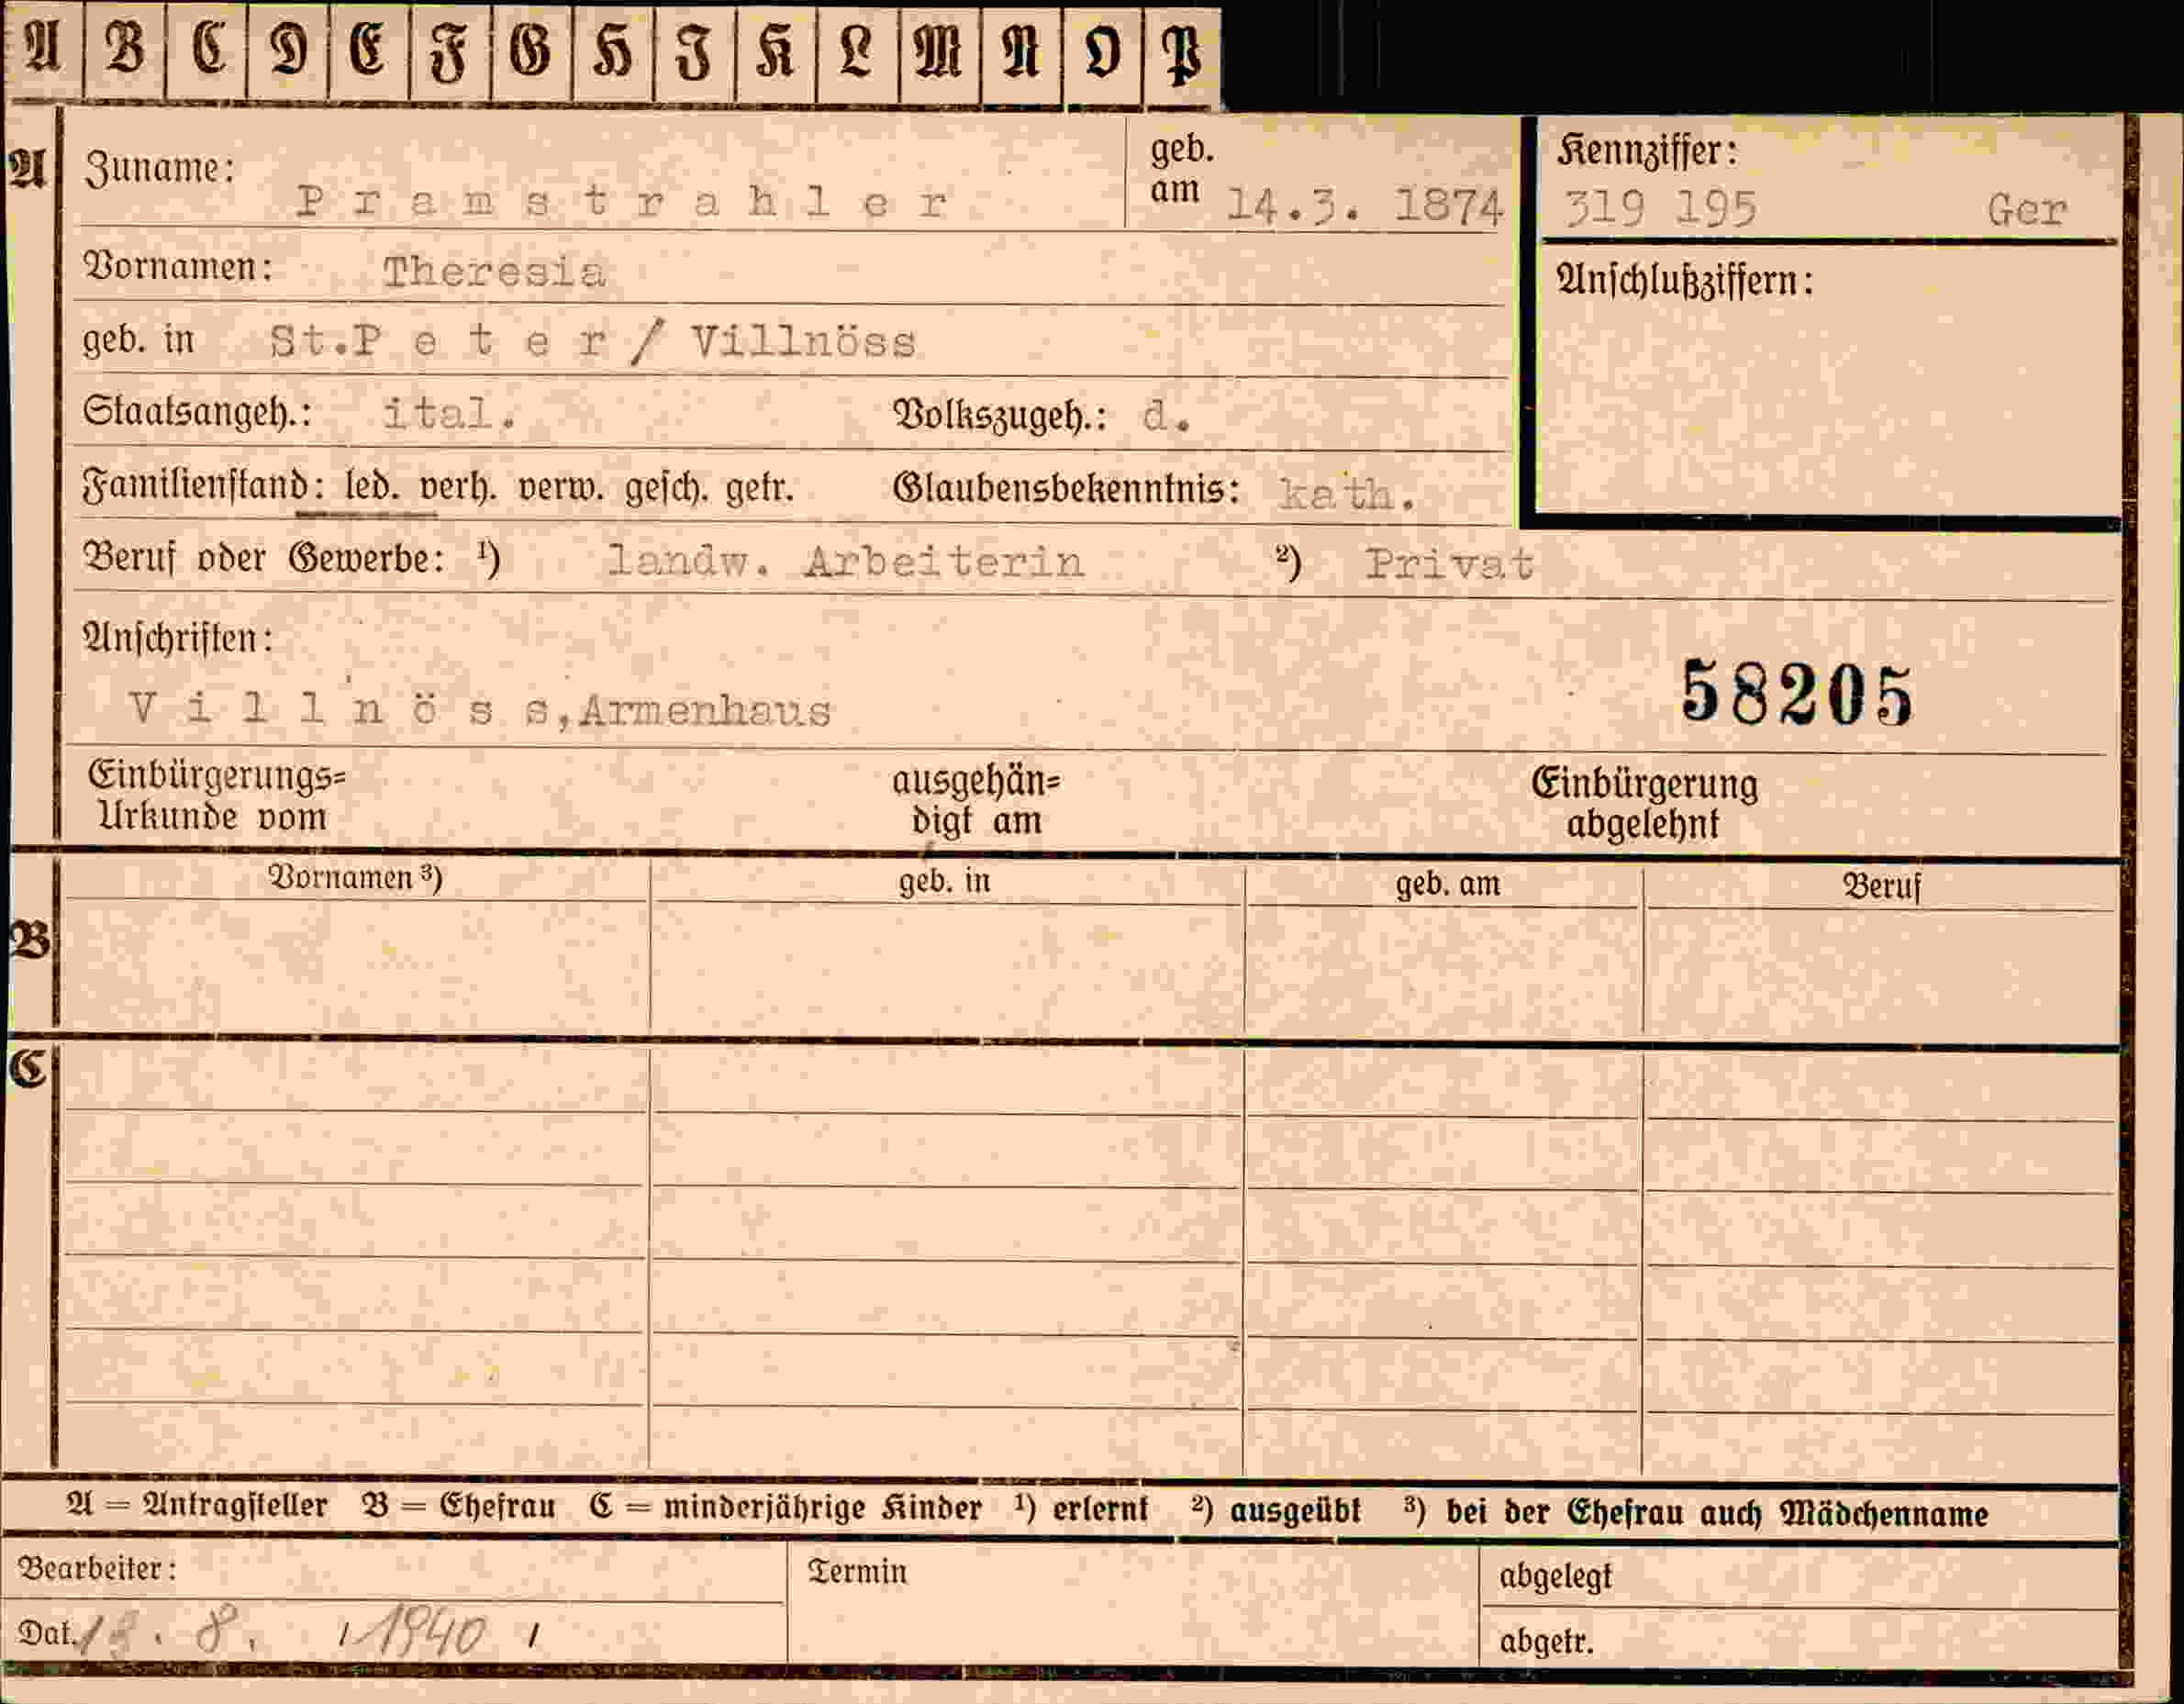 A B C D E F G H J K L M N O P
A Zuname: Pramstrahler geb. am 14.3. 1874 Kennziffer: 319 195 Ger
Vornamen: Theresia Anschlußziffern:
geb. in St.Peter/ Villnöss
Staatsangeh.: ital. Volkszugeh.: d.
Familienstand: led. verh. verw. gesch. getr. Glaubensbekenntnis: kath.
Beruf oder Gewerbe: ¹) landw. Arbeiterin ²) Privat
Anschriften:
58205
Villnöss,Armenhaus
Einbürgerungs= ausgehän= Einbürgerung
Urkunde vom digt am abgelehnt
Vornamen ³) geb. in geb. am Beruf
B
C
A = Antragsteller B = Ehefrau C = minderjährige Kinder ¹) erlernt ²) ausgeübt ³) bei der Ehefrau auch Mädchenname
Bearbeiter: Termin abgelegt
Dat. 8. 1940 abgetr.